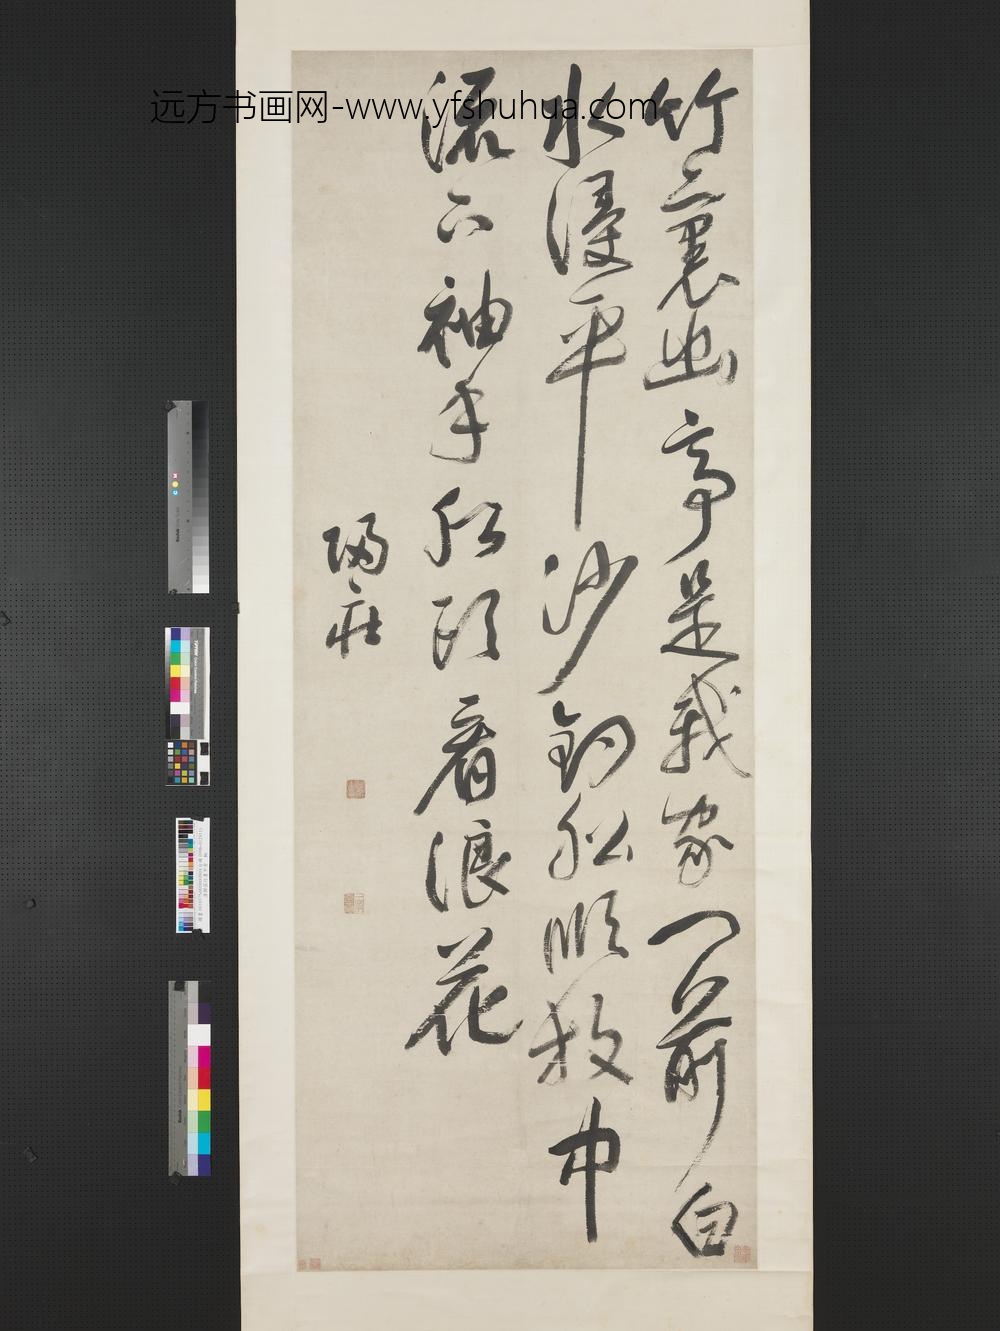 远方书画网-www.yfshuhua.com
竹裏幽亭是我家門前白
水浸平沙釣船順放中
流下袖手船頭看浪花
歸莊